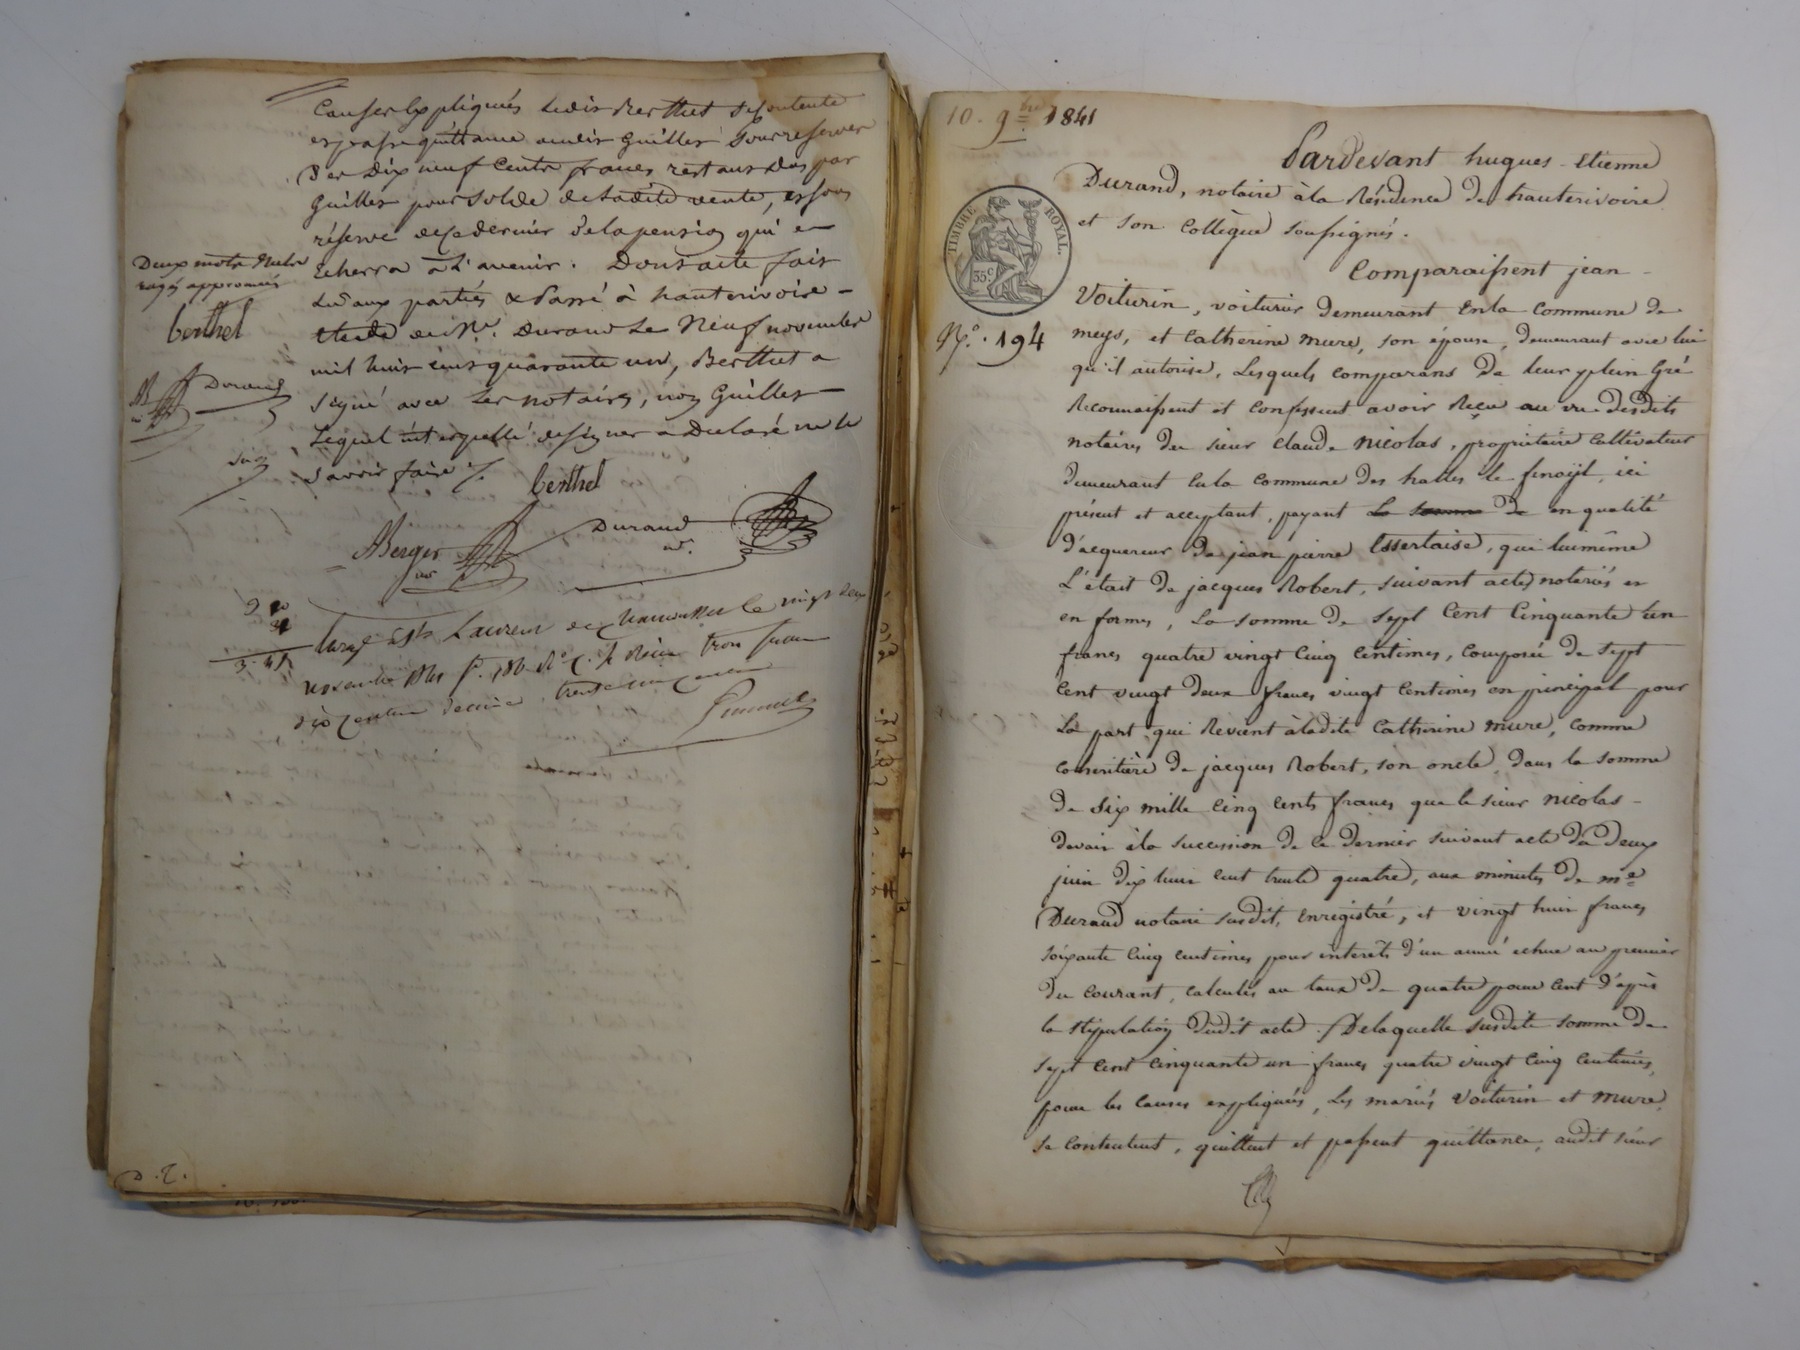 Causes Expliquées ledit Berthet se contente
et passe quittance audit Guillet sous reserver
Des dix neuf Cents francs restant dus par
Guillet pour solde de ladite vente, et sous
réserve de ce dernier de la pension qui en
Echerra à l'avenir. Dont acte fait
Lu aux parties & Passé à hauterivoire
étude de Me. Durand Le Neuf novembre
mil huit cent quarante un, Berthet a
signé avec les notaires, non Guillet
Lequel interpellé de signer a Declaré ne le
savoir faire
Deux mots
rayés approuvés
berthet
Durand
berthet
ABerger
Durand
nre
3.41
St Laurent de Chamousset le vingt deux
novembre 1841 reçu trois francs
dix centimes décime trente un centimes
D. T.
10. 9bre 1841
Pardevant hugues - Etienne
Durand, notaire à la Résidence de hauterivoire
et son Collègue soussignés.
TIMBRE ROYAL.
35 C
Comparaissent jean
Voiturin, voiturier demeurant en la Commune de
No. 194
meys, et Catherine mure, son épouse, demeurant avec lui
qu'il autorise, Lesquels comparans de leur plein Gré
Reconnaissent et confessent avoir Reçu au vu desdits
notaires du sieur Claude Nicolas, propriétaire Cultivateur
demeurant en la commune des halles le fenoÿl, ici
présent et acceptant, payant la somme de en qualité
d'acquereur de jean pierre Essertaise, qui lui même
L'était de jacques Robert, suivant actes notariés en
en formes, La somme de Sept Cent Cinquante un
francs quatre vingt Cinq Centimes, Composée de sept
Cent vingt deux francs vingt Centimes en principal pour
La part qui Revient à ladite Catherine mure, comme
coheritière de jacques Robert, son oncle, dans la somme
de Six mille Cinq Cents francs que le sieur Nicolas -
devait à la succession de ce dernier suivant acte du deux
juin dix huit cent trente quatre, aux minutes de me
Durand notaire susdit, Enregistré, et vingt huit francs
soixante Cinq Centimes pour interêts d'un année echue au premier
du courant, calculés au taux de quatre pour Cent d'après
la stipulation dudit acte. De laquelle susdite somme de
sept Cent Cinquante un francs quatre vingt Cinq Centimes,
pour les Causes expliquées, Les mariés Voiturin et mure
se contentent, quittent et passent quittance, audit sieur